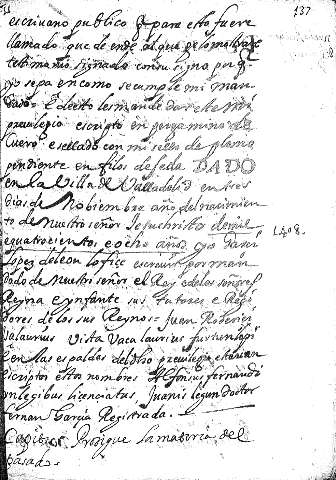 137
escriuano publico q̃ para esto fuere
llamado que de ende al que se lo mostrare
testimonio signado con su signo por q̃
yo sepa en como se cumple mi man
dado = E desto les mande dar este mi
preuilegio escripto en pergamino de
cuero e sellado con mi sello de plomo
pendiente en filos de seda DADO
en la Villa de Valladolid en tres
dias de Nobiembre año del nacimien
to de nuestro señor Jesuchristo de mil
e quatrocientos e ocho años. e yo
1408.
Lopez de leon lo fice escreuir por man
dado de nuestro señor el Rey e de los señores
Reyna e ynfante sus Tutores e Regi
dores de los sus Reynos = Juan Roderici
Vista Vaca laurius
en las espaldas del dho preuilegio estauan
escriptos estos nombres Alfonsus fernandi
in legibus licenciatus, Juanis legum doctor
fernan Garcia Registrada.
Capitulo Prosigue la materia del
pasado.